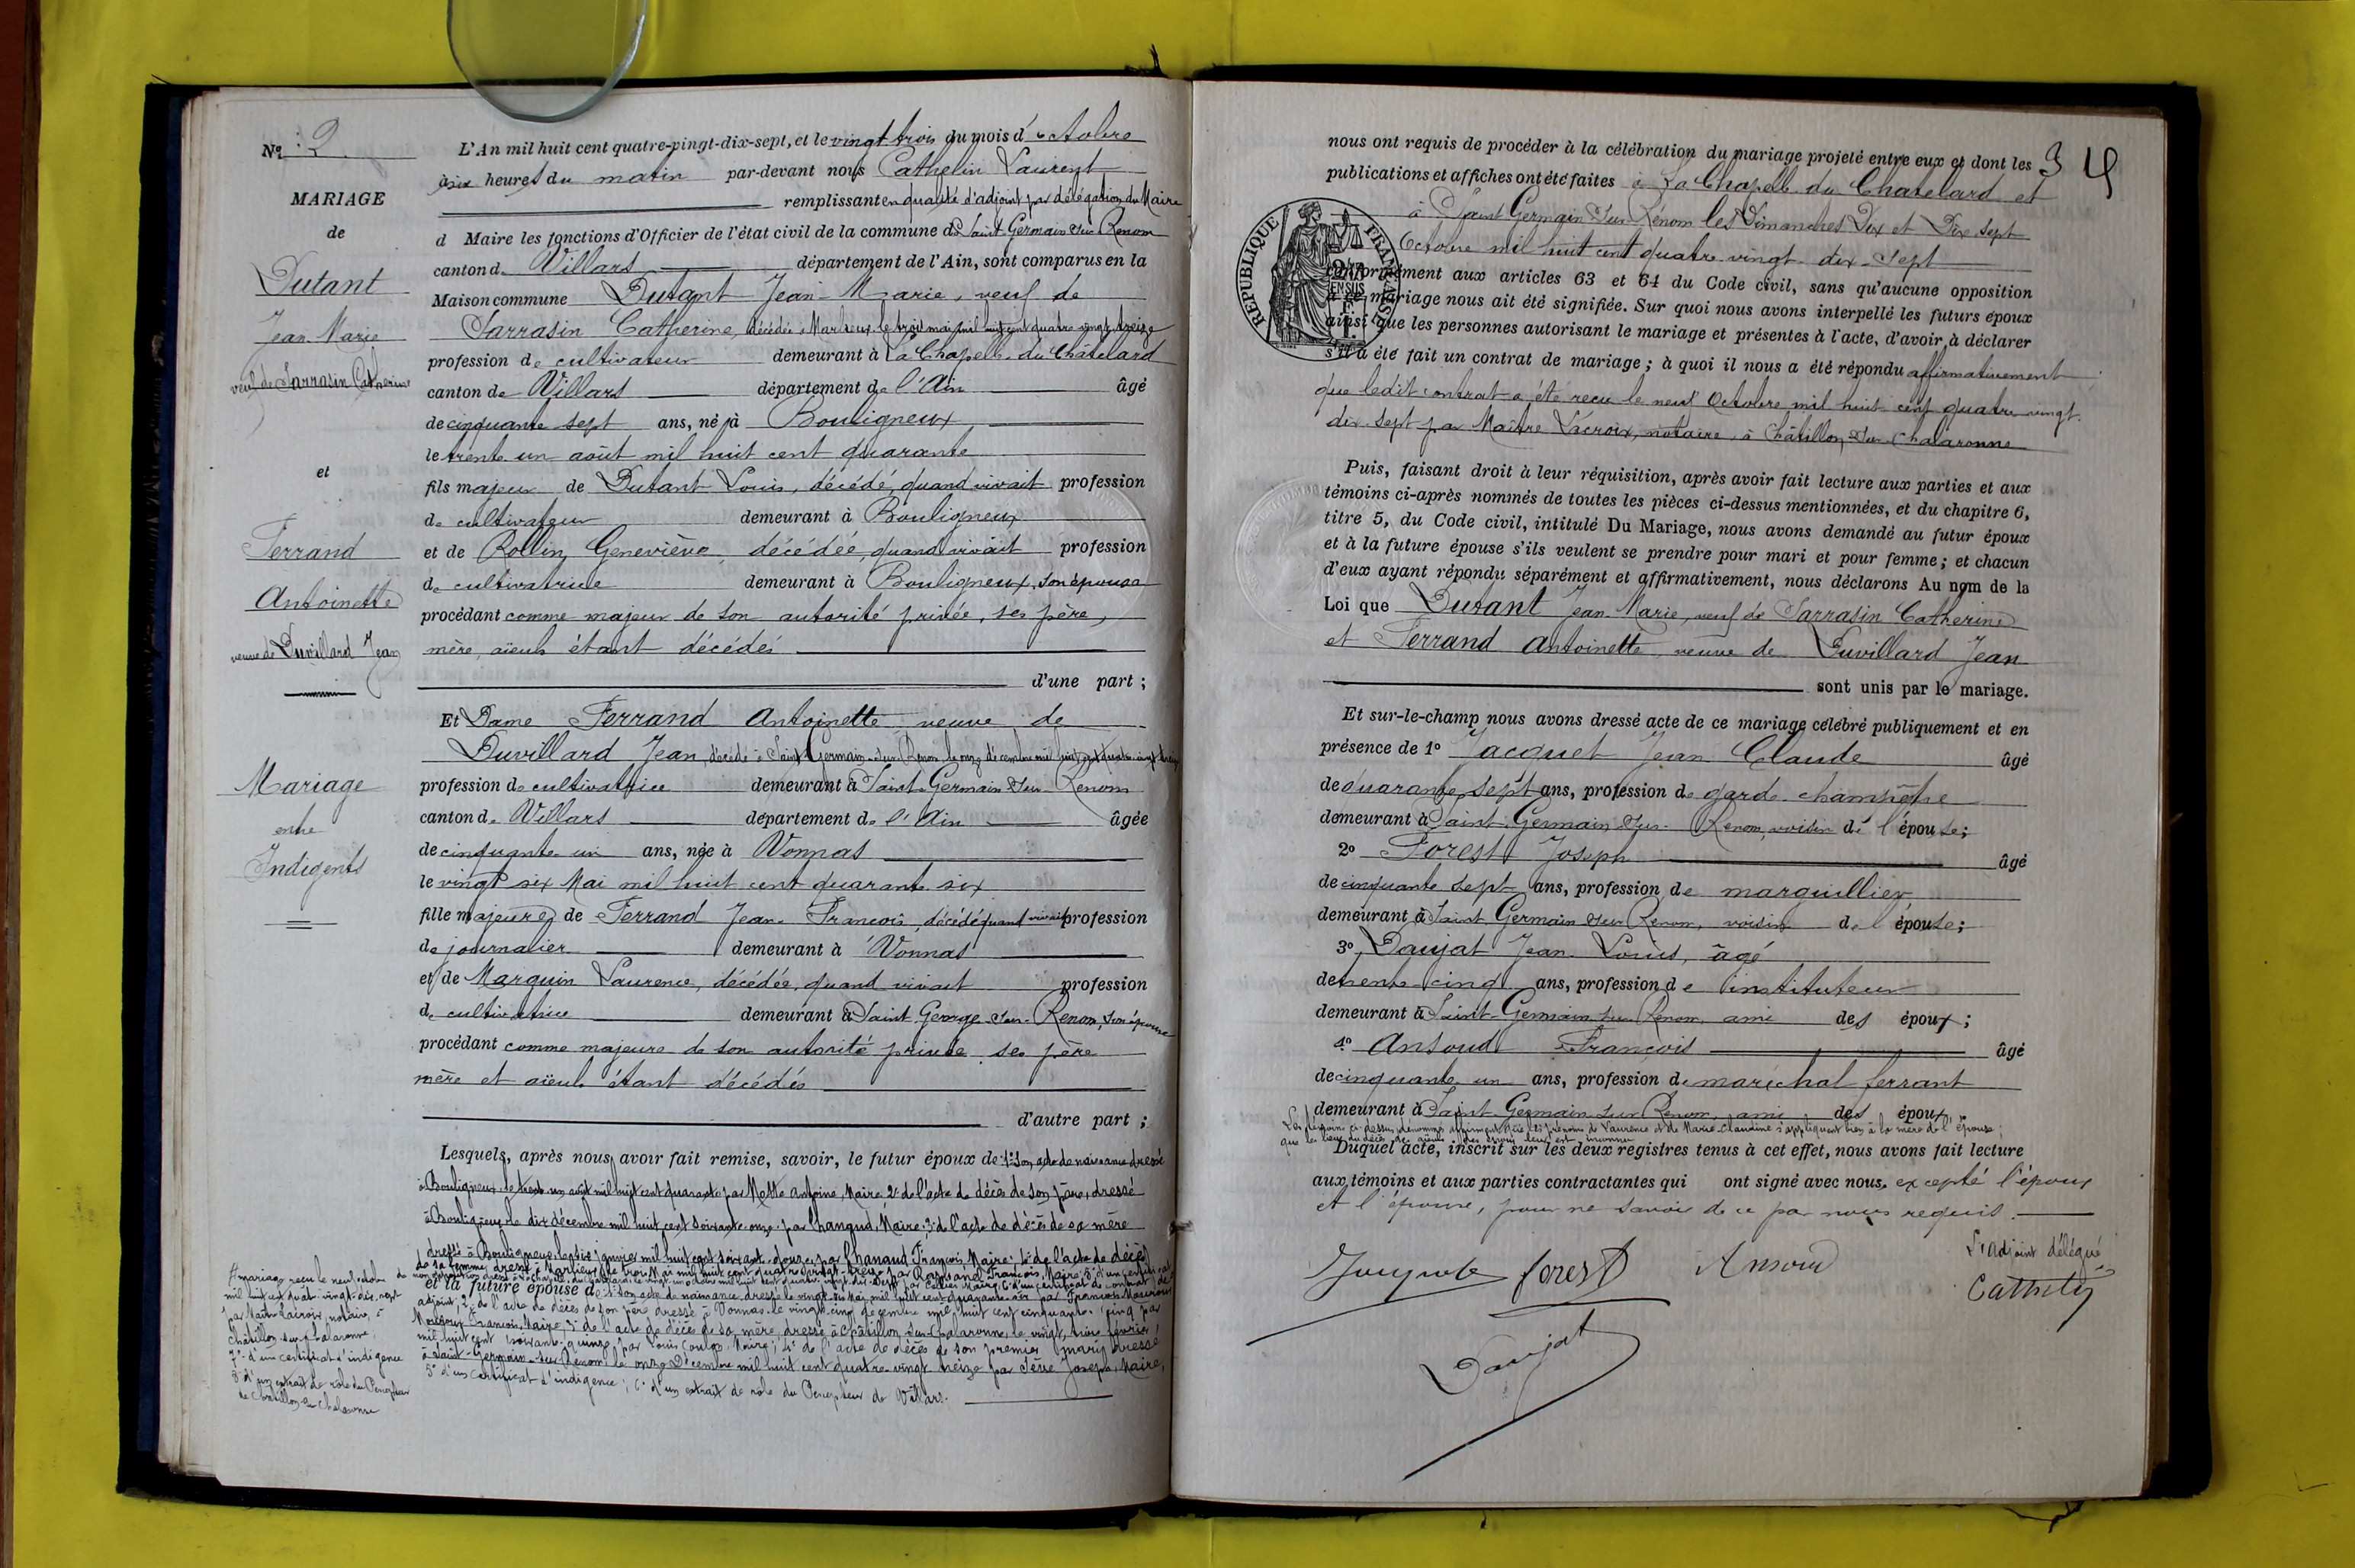 Nº 2
MARIAGE
de
Dutant
Jean Marie
veuf de Sarrasin Catherine
et
Ferrand
Antoinette
veuve de Duvillard Jean
Mariage
entre
Indigents
L'An mil huit cent quatre-vingt-dix-sept, et le vingt trois du mois d'octobre
à six heures du matin par-devant nous Cathelin Laurent
remplissant en qualité d'adjoint par délégation du Maire
d Maire les fonctions d'Officier de l'état civil de la commune de Saint Germain sur Renom
canton de Villars département de l'Ain, sont comparus en la
Maison commune Dutant Jean-Marie, veuf de
Sarrasin Catherine, décédée à Marlieux le trois mai mil huit cent quatre vingt treize
profession de cultivateur demeurant à La Chapelle du Châtelard
canton de Villars département de l'Ain âgé
de cinquante sept ans, né à Bouligneux
le trente un août mil huit cent quarante
fils majeur de Dutant Louis, décédé, quand vivait profession
de cultivateur demeurant à Bouligneux
et de Rollin Geneviève décédée, quand vivait profession
de cultivatrice demeurant à Bouligneux, son épouse
procédant comme majeur de son autorité privée, ses père,
mère, aïeuls étant décédés
d'une part ;
Et Dame Ferrand Antoinette veuve de
Duvillard Jean, décédé à Saint Germain-sur-Renom le onze décembre mil huit cent quatre vingt treize
profession de cultivatrice demeurant à Saint-Germain sur Renom
canton de Villars département de l'Ain âgée
de cinquante un ans, née à Vonnas
le vingt six Mai mil huit cent quarante six
fille majeure de Ferrand Jean-François, décédé quand vivait profession
de journalier demeurant à Vonnas
et de Marguin Laurence, décédée, quand vivait profession
de cultivatrice demeurant à Saint George-sur-Renom, son épouse
procédant comme majeure de son autorité privée ses père
mère et aïeuls étant décédés
d'autre part ;
Lesquels, après nous avoir fait remise, savoir, le futur époux de : 1º Son acte de naissance dressé
à Bouligneux le trente un août mil huit cent quarante par Mette Antoine, Maire 2º de l'acte de décès de son père, dressé
à Bouligneux le dix décembre mil huit cent soixante onze par Chanaud, Maire ; 3º de l'acte de décès de sa mère
dressé à Bouligneux le six janvier mil huit cent soixante-douze, par Chanaud François, Maire ; 4º de l'acte de décès
de sa femme, dressé à Marlieux, le trois Mai mil huit cent quatre vingt treize par François, Maire 5º d'un certificat
de non opposition dressé à la Chapelle du Châtelard le vingt un octobre mil huit cent quatre vingt dix sept par Maire 6º d'un certificat de contrat de
mariage reçu le neuf octobre
mil huit cent quatre vingt-dix-sept
par Maître Lacroix, notaire, à
Châtillon-sur-Chalaronne,
7º d'un certificat d'indigence
8º d'un extrait de rôle du Percepteur
de Châtillon-sur Chalaronne
et la future épouse de : 1º Son acte de naissance dressé le vingt-six Mai mil huit cent quarante-six par François
adjoint ; 2º de l'acte de décès de son père dressé à Vonnas le vingt-cinq décembre mil huit cent cinquante-cinq par
François, Maire, 3º de l'acte de décès de sa mère, dressé à Châtillon-sur-Chalaronne, le vingt trois février,
mil huit cent soixante-quinze par Louis Maire ; 4º de l'acte de décès de son premier mari dressé
à Saint-Germain-sur Renom le onze Décembre mil huit cent quatre-vingt treize par Joseph, Maire,
5º d'un certificat d'indigence ; 6º d'un extrait de rôle du Percepteur de Villars.
3 4
nous ont requis de procéder à la célébration du mariage projeté entre eux et dont les
publications et affiches ont été faites à La Chapelle du Chatelard et
à Saint Germain sur Renom les Dimanches Dix et Dix Sept
Octobre mil huit cent quatre-vingt-dix-sept
RÉPUBLIQUE FRANÇAISE
conformément aux articles 63 et 64 du Code civil, sans qu'aucune opposition
à ce mariage nous ait été signifiée. Sur quoi nous avons interpellé les futurs époux
ainsi que les personnes autorisant le mariage et présentes à l'acte, d'avoir à déclarer
s'il a été fait un contrat de mariage ; à quoi il nous a été répondu affirmativement
que ledit contrat a été reçu le neuf Octobre mil huit cent quatre vingt
dix sept par Maître Lacroix, notaire à Châtillon sur Chalaronne
Puis, faisant droit à leur réquisition, après avoir fait lecture aux parties et aux
témoins ci-après nommés de toutes les pièces ci-dessus mentionnées, et du chapitre 6,
titre 5, du Code civil, intitulé Du Mariage, nous avons demandé au futur époux
et à la future épouse s'ils veulent se prendre pour mari et pour femme ; et chacun
d'eux ayant répondu séparément et affirmativement, nous déclarons Au nom de la
Loi que Dutant Jean Marie, veuf de Sarrasin Catherine
et Ferrand Antoinette, veuve de Duvillard Jean
sont unis par le mariage.
Et sur-le-champ nous avons dressé acte de ce mariage célébré publiquement et en
présence de 1º Jacquet Jean Claude âgé
de quarante sept ans, profession de garde champêtre
demeurant à Saint-Germain sur Renom, voisin de l'épouse ;
2º Forest Joseph âgé
de cinquante sept ans, profession de marguillier
demeurant à Saint Germain sur Renom, voisin de l'épouse ;
3º Daujat Jean Louis, âgé
de trente cinq ans, profession de instituteur
demeurant à Saint-Germain sur Renom ami des époux ;
4º Ansoud François âgé
de cinquante un ans, profession de maréchal ferrant
demeurant à Saint-Germain sur Renom, ami des époux
Les témoins ci-dessus dénommés affirment que les prénoms de Laurence et de Marie-Claudine s'appliquent bien à la mère de l'épouse ;
que les lieux du décès des aïeuls des époux leur est inconnu
Duquel acte, inscrit sur les deux registres tenus à cet effet, nous avons fait lecture
aux témoins et aux parties contractantes qui ont signé avec nous, excepté l'époux
et l'épouse, pour ne savoir de ce par nous requis.
Jacquet Forest Ansoud
L'adjoint délégué
Cathelin
Daujat